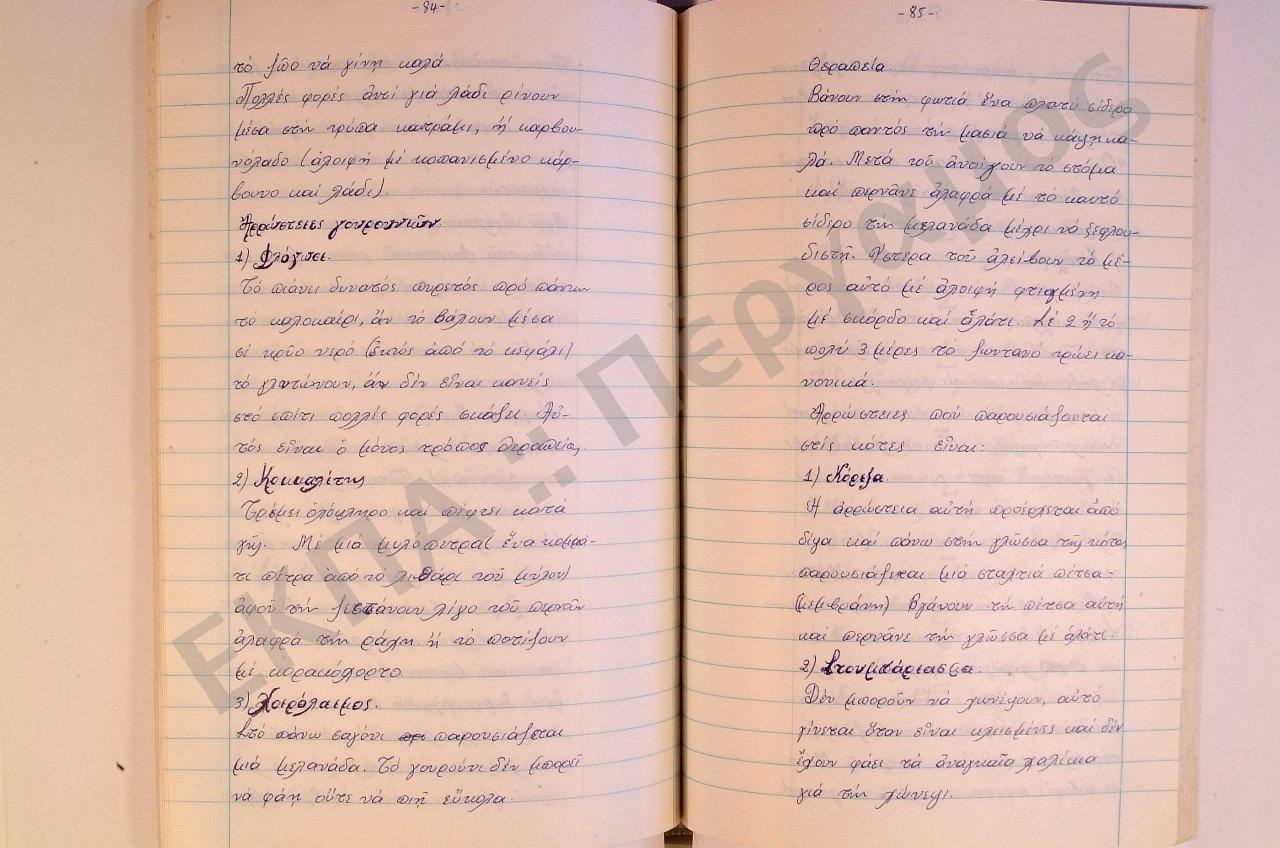 -84-
τό ζῶο νά γίνη καλά.
Πολλές φορές ἀντί γιά λάδι ρίνουν
μέσα στήν τρύπα κατράμι, ἤ καρβου-
νόλαδο (ἀλοιφή μέ κοπανισμένο κάρ-
βουνο καί λάδι)
Ἀρρώστειες γουρουνιῶν
1) Φλόγωσι.
Τό πιάνει δυνατός πυρετός πρό πάντων
τό καλοκαίρι, ἄν τό βάλουν μέσα
σέ κρῦο νερό (ἐκτός ἀπό τό κεφάλι)
τό γλυτώνουν, ἄν δέν εἶναι κανείς
στό σπίτι πολλές φορές σκάζει. Αὐ-
τός εἶναι ὁ μόνος τρόπος θεραπείας
2) Κοκκαλέτης
Τρέμει ὁλόκληρο καί πέφτει κατά
γῆς. Μέ μιά μυλόπετρα (ἕνα κομμά-
τι πέτρα ἀπό τό λιθάρι τοῦ μύλου)
ἀφοῦ τήν ζεστάνουν λίγο τοῦ περνᾶν
ἀλαφρά τήν ράχη ἤ τό ποτίζουν
μέ κορακόχορτο
3) Χοιρόλαιμος.
Στό πάνω σαγόνι παρουσιάζεται
μιά μελανάδα. Τό γουρούνι δέν μπορεῖ
νά φάη οὔτε νά πιῆ εὔκολα.
-85-
Θεραπεία
Βάνουν στήν φωτιά ἕνα πλατύ σίδερο
πρό παντός τήν μασιά νά κάψη κα-
λά. Μετά τοῦ ἀνοίγουν τό στόμα
καί περνᾶνε ἀλαφρά μέ τό καυτό
σίδερο τήν μελανάδα μέχρι νά ξεφλου-
διστῆ. Ὕστερα τοῦ ἀλείβουν τό μέ-
ρος αὐτό μέ ἀλοιφή φτιαγμένη
μέ σκόρδο καί ἁλάτι. Σέ 2 ἤ τό
πολύ 3 μέρες τό ζωντανό τρώει κα-
νονικά.
Ἀρρώστειες πού παρουσιάζονται
στίς κότες εἶναι:
1) Κόρυζα
Ἡ ἀρρώστεια αὐτή προέρχεται ἀπό
δίψα καί πάνω στήν γλῶσσα τῆς κότας
παρουσιάζεται μιά σταχτιά πέτσα-
(μεμβράνη) Βγάνουν τή πέτσα αὐτή
καί περνᾶνε τήν γλῶσσα μέ ἁλάτι.
2) Στουμπάριασμα.
Δέν μποροῦν νά χωνέψουν, αὐτό
γίνεται ὅταν εἶναι κλεισμένες καί δέν
ἔχουν φάει τά ἀναγκαῖα χαλίκια
γιά τήν χώνεψι.
ΕΚΠΑ :: Πέργαμος